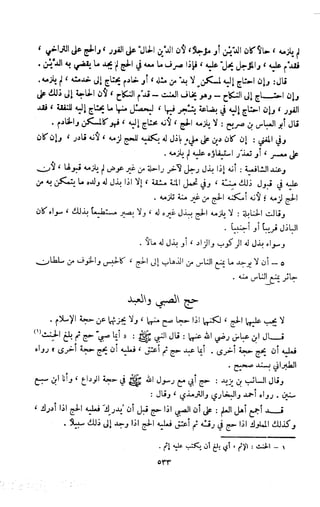 لم يلزمه ، حالا كان الدين أو مؤجلا ، لأن الدين الحال على الفور ، والحج على التراخي ،
فقدم عليه ، والمؤجل يحل عليه ، فإذا صرف ما معه في الحج لم يجد ما يقضي به الدين .
قال : وإن احتاج إليه لمسكن لا بد من مثله ، أو خادم يحتاج إلى خدمته ، لم يلزمه .
وإن احتاج إلى النكاح – وهو يخاف العنت – قدم النكاح ، لأن الحاجة إلى ذلك على
الفور ، وإن احتاج إليه في بضاعة يتجر فيها ، ليحصل منها ما يحتاج إليه للنفقة ، فقد
قال أبو العباس بن صريح : لا يلزمه الحج ، لأنه محتاج إليه ، فهو كالمسكن والخادم .
وفي المغني : إن كان دين على مليء باذل له يكفيه للحج لزمه ، لأنه قادر ، وإن كان
على معسر ، أو تعذر استيفاؤه عليه لم يلزمه .
وعند الشافعية : أنه إذا بذل رجل لآخر راحلة من غير عوض لم يلزمه قبولها ، لأن
عليه في قبول ذلك منة ، وفي تحمل المنة مشقة ، إلا إذا بذل له ولده ما يتمكن به من
الحج لزمه ؛ لأنه أمكنه الحج من غير منة تلزمه .
وقالت الحنابلة : لا يلزمه الحج ببذل غيره له ، ولا يصير مستطيعا بذلك ، سواء كان
الباذل قريبا أو أجنبيا .
وسواء بذل له الركوب والزاد ، أو بذل له مالا .
٥ – أن لا يوجد ما يمنع الناس من الذهاب إلى الحج ، كالحبس والخوف من سلطان
جائر يمنع الناس منه .
حج الصبي والعبد
لا يجب عليهما الحج ، لكنهما إذا حجا صح منهما ، ولا يجزئهما عن حجة الإسلام .
قال ابن عباس رضي الله عنهما : قال النبي ﷺ : « أيما صبي حج ثم بلغ الحنث (١)
فعليه أن يحج حجة أخرى . أيما عبد حج ثم أعتق ، فعليه أن يحج حجة أخرى » رواه
الطبراني بسند صحيح .
وقال السائب بن يزيد : حج أبي مع رسول الله ﷺ في حجة الوداع ، وأنا ابن سبع
سنين . رواه أحمد والبخاري والترمذي ، وقال :
قد أجمع أهل العلم : على أن الصبي إذا حج قبل أن يدرك فعليه الحج إذا أدرك ،
وكذلك المملوك إذا حج في رقه ثم أعتق فعليه الحج إذا وجد إلى ذلك سبيلا .
١ – الحنث : الإثم ، أي بلغ أن يكتب عليه إثم .
٥٣٣